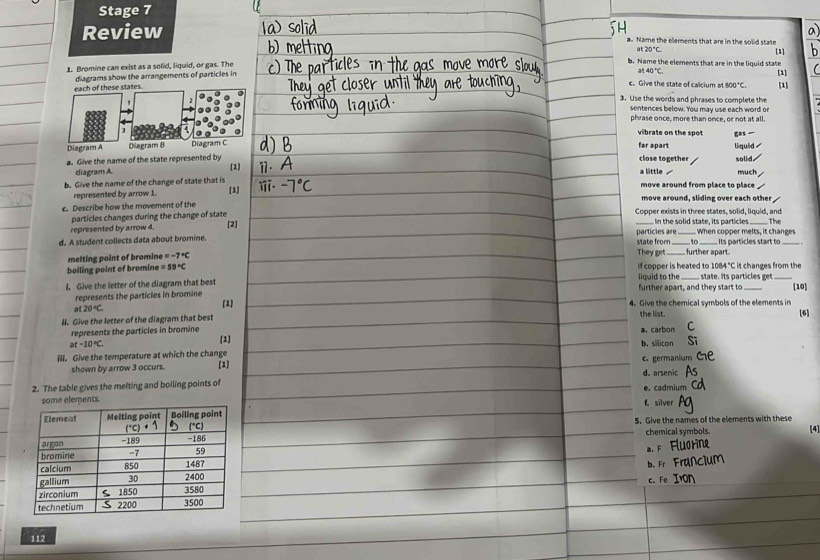 Stage 7
Review
1. Bromine can exist as a solid, liquid, or gas. The
diagrams show the arrangements of particles in
each of these states.
1
2
3
4
Diagram A Diagram B Diagram C
a. Give the name of the state represented by
diagram A. [1]
b. Give the name of the change of state that is
represented by arrow 1. [1]
c. Describe how the movement of the
particles changes during the change of state
represented by arrow 4. [2]
d. A student collects data about bromine.
melting point of bromine = -7 °C
boiling point of bromine = 59 °C
i. Give the letter of the diagram that best
represents the particles in bromine
at 20 °C. [1]
ii. Give the letter of the diagram that best
represents the particles in bromine
at -10 °C. [1]
iii. Give the temperature at which the change
shown by arrow 3 occurs. [1]
2. The table gives the melting and boiling points of
some elements.
Element Melting point (°C) Boiling point (°C)
argon -189 -186
bromine -7 59
calcium 850 1487
gallium 30 2400
zirconium S 1850 3580
technetium S 2200 3500
112
1a) solid
b) melting
c) The particles in the gas move more slowly.
They get closer until they are touching,
forming liquid.
d) B
ii. A
iii. -7°C
a. Name the elements that are in the solid state
at 20 °C. [1]
b. Name the elements that are in the liquid state
at 40 °C. [1]
c. Give the state of calcium at 800 °C. [1]
3. Use the words and phrases to complete the
sentences below. You may use each word or
phrase once, more than once, or not at all.
vibrate on the spot gas
far apart liquid
close together solid
a little much
move around from place to place
move around, sliding over each other
Copper exists in three states, solid, liquid, and
_____ In the solid state, its particles _____ The
particles are _____ When copper melts, it changes
state from _____ to _____ Its particles start to _____.
They get _____ further apart.
If copper is heated to 1084 °C it changes from the
liquid to the _____ state. Its particles get _____
further apart, and they start to _____ [10]
4. Give the chemical symbols of the elements in
the list. [6]
a. carbon C
b. silicon Si
c. germanium Ge
d. arsenic As
e. cadmium Cd
f. silver Ag
5. Give the names of the elements with these
chemical symbols. [4]
a. F Fluorine
b. Fr Francium
c. Fe Iron
a)
b